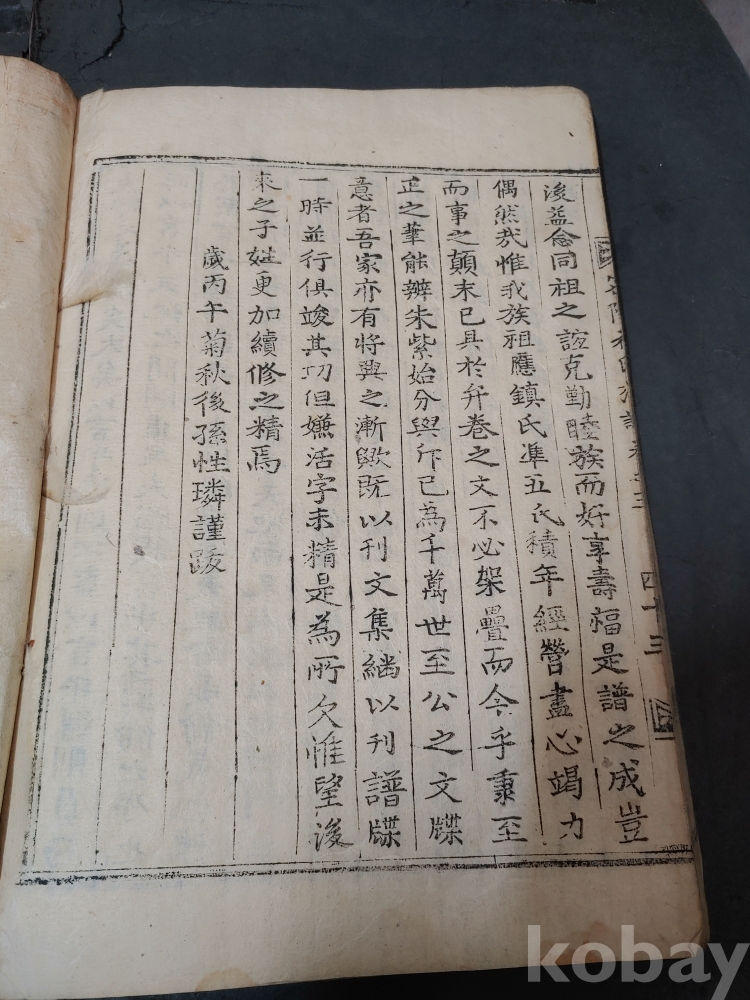 後益念同祖之誼克勤睦族而好享壽福是譜之成豈
偶然哉惟我族祖應鎮氏準五氏積年經營盡心竭力
而事之顛末已具於弁卷之文不必架疊而今乎秉至
正之筆能辨朱紫始分與斤已為千萬世至公之文牒
意者吾家亦有將興之漸歟既以刊文集繼以刊譜牒
一時並行俱竣其功但嫌活字未精是為所欠惟望後
來之子姓更加續修之精焉
歲丙午菊秋後孫性璘謹跋
四十三
kobay